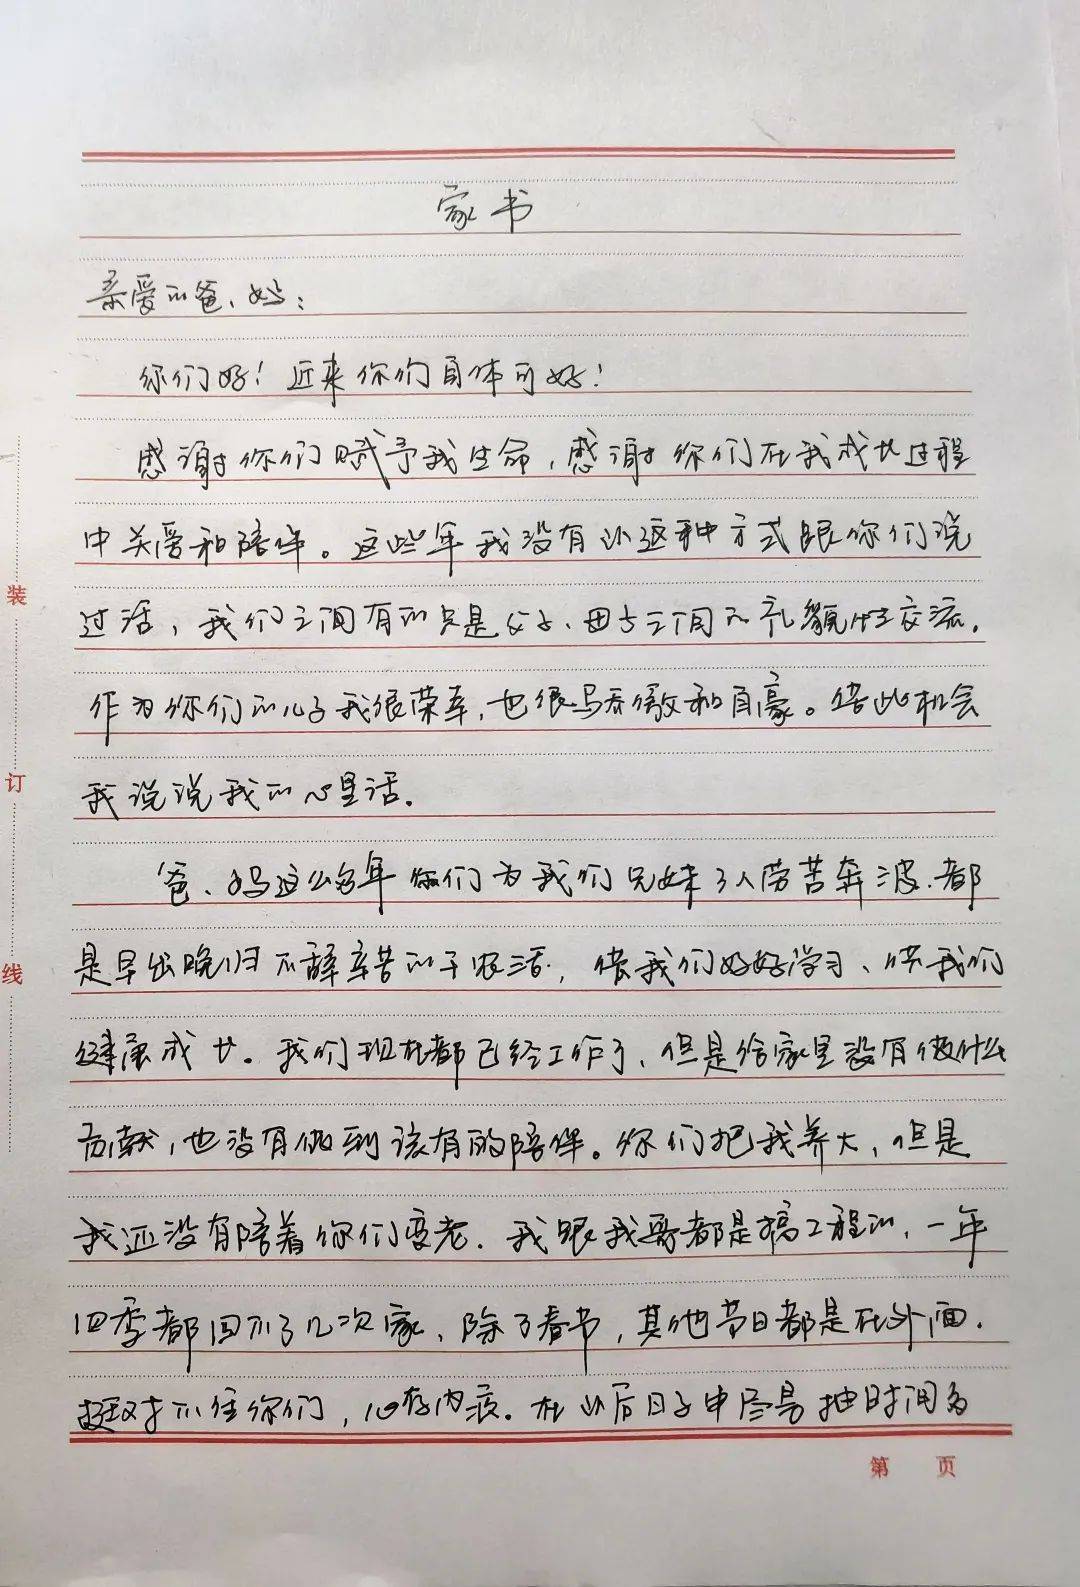 家书
亲爱的爸、妈：
你们好！近来你们身体可好！
感谢你们赋予我生命，感谢你们在我成长过程
中关爱和陪伴。这些年我没有以这种方式跟你们说
过话，我们之间有的只是父子、母子之间的礼貌性交流。
作为你们的儿子我很荣幸，也很骄傲和自豪。借此机会
我说说我的心里话。
爸、妈这么多年你们为我们兄妹了人劳苦奔波、都
是早出晚归不辞辛苦的干农活，供我们好好学习、供我们
健康成长。我们现在都已经工作了、但是给家里没有做什么
贡献，也没有做到该有的陪伴。你们把我养大，但是
我还没有陪着你们变老。我跟我哥都是搞工程的，一年
四季都回不了几次家，除了春节，其他节日都是在外面.
对不住你们，心存内疚。在以后日子中尽量抽时间多
装
订
线
第 页